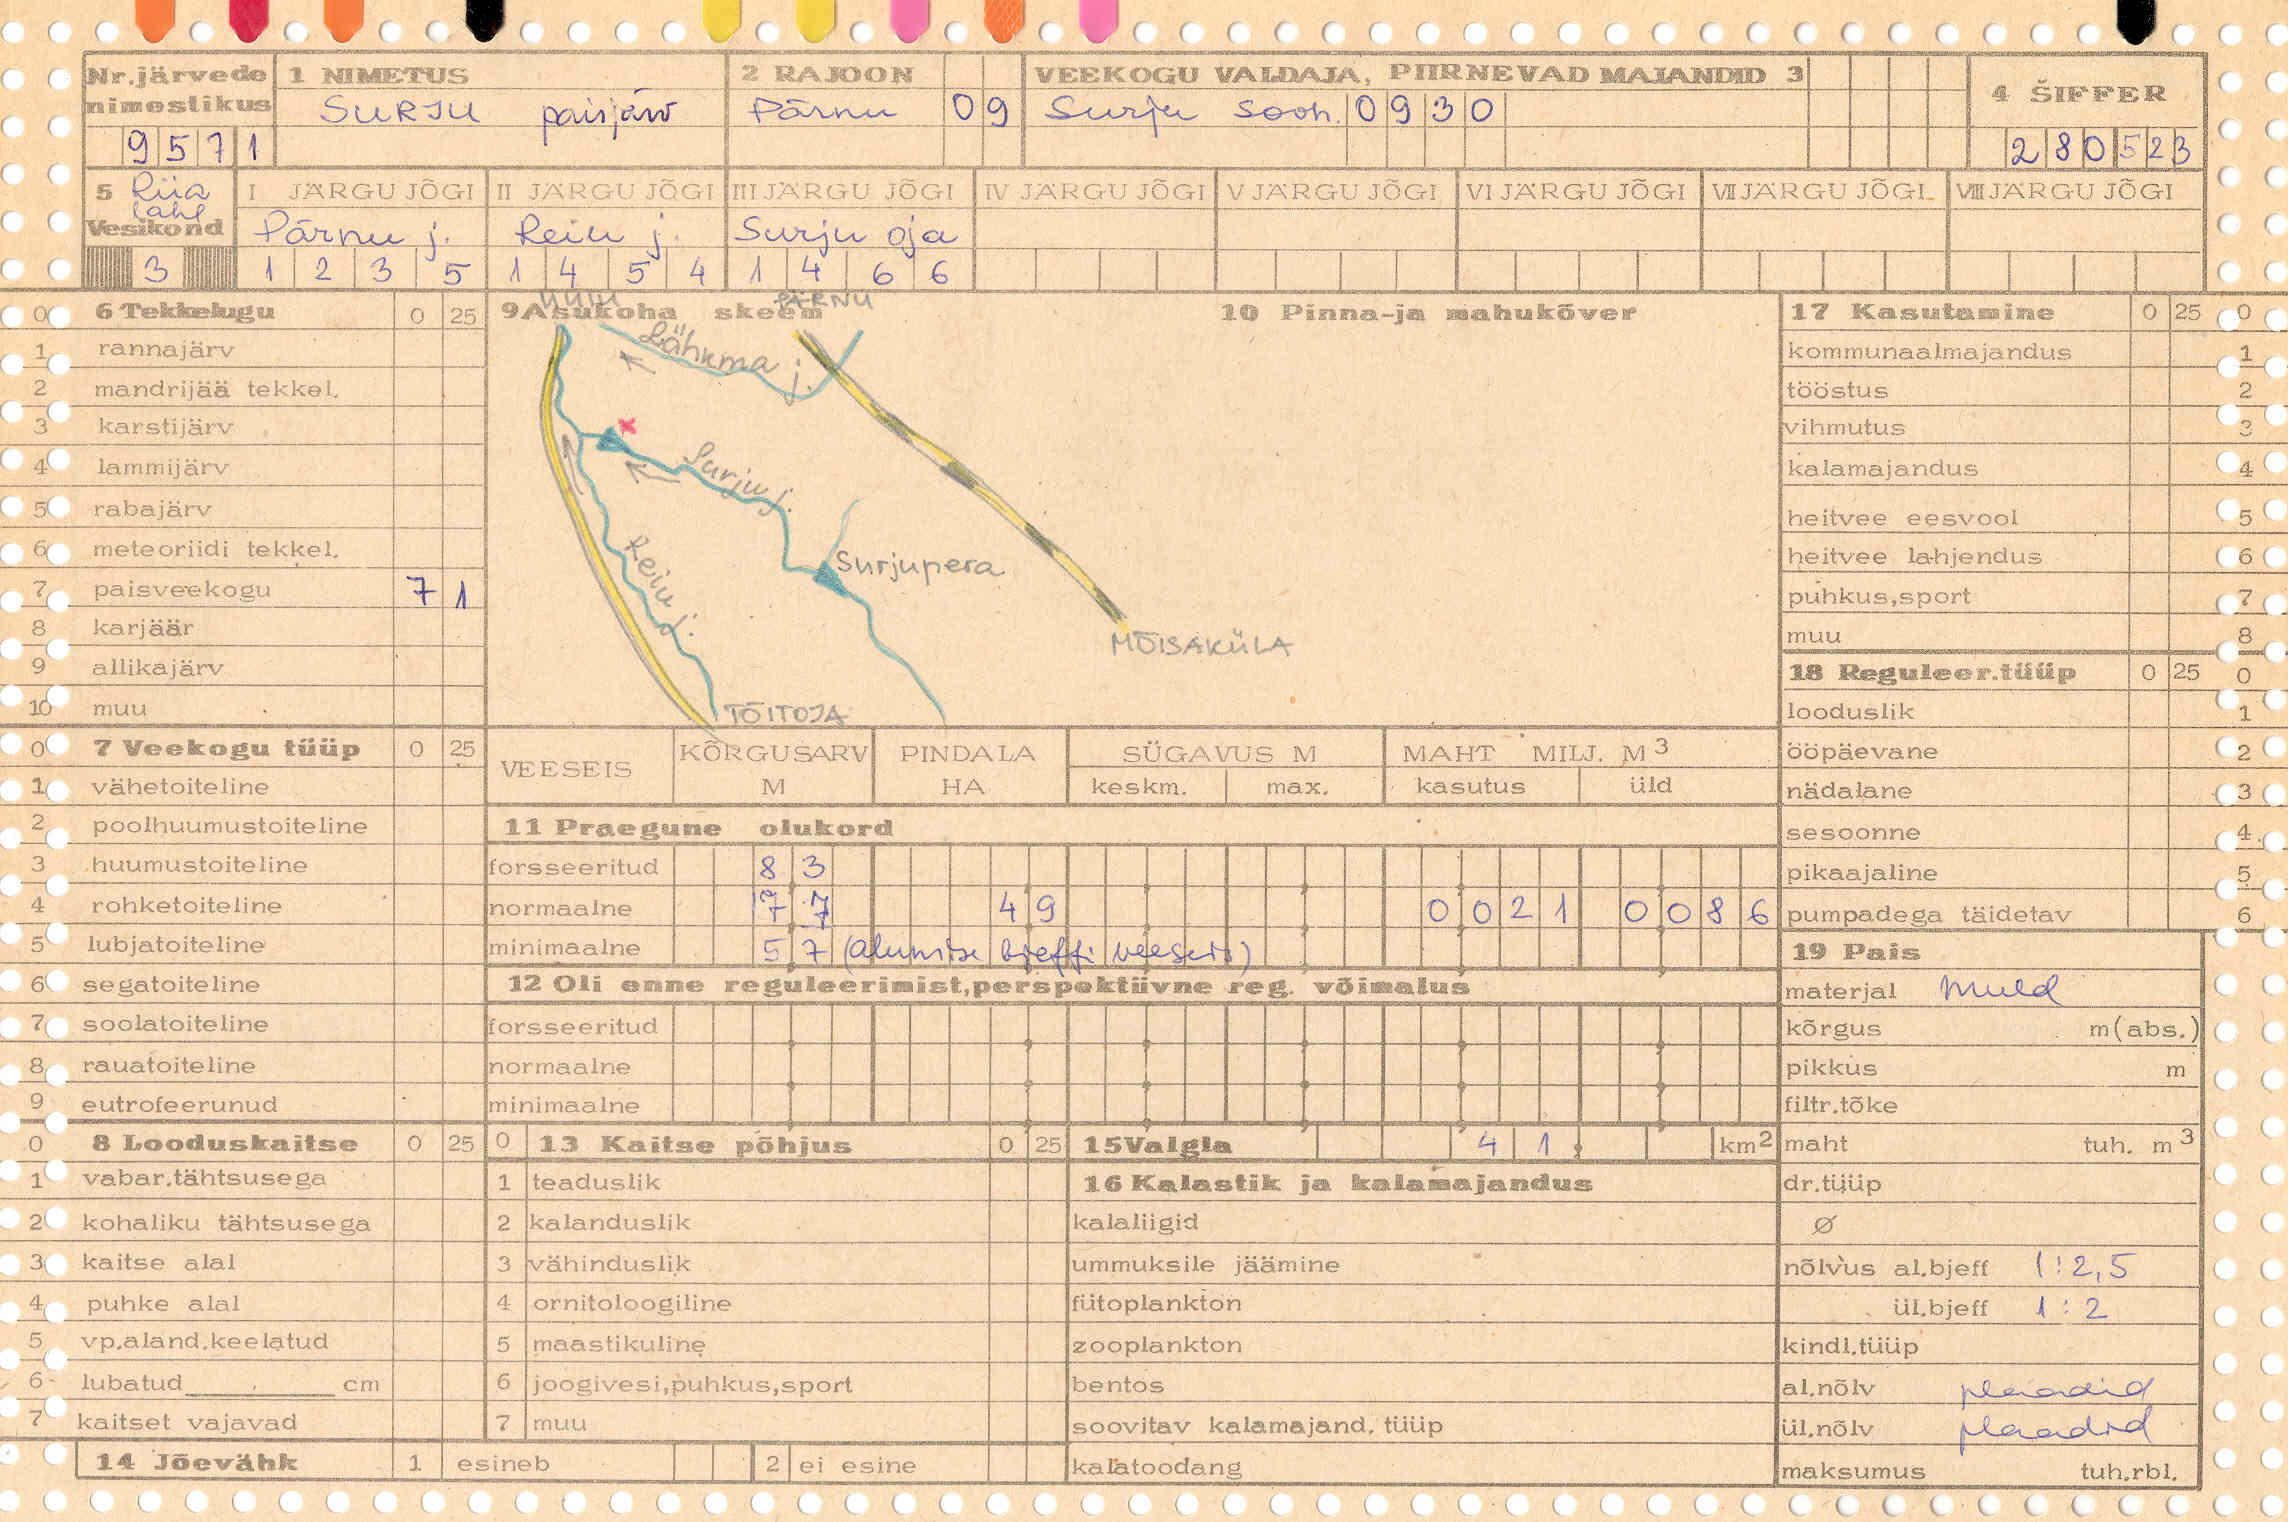 Nr.järvede nimestikus
9571
1 NIMETUS
SURJU paisjärv
2 RAJOON
Pärnu 09
VEEKOGU VALDAJA, PIIRNEVAD MAJANDID 3
Surju Sooh. 0930
4 ŠIFFER
280523
5 Riia laht
Vesikond
3
I JÄRGU JÕGI
Pärnu j.
1235
II JÄRGU JÕGI
Reiu j.
1454
III JÄRGU JÕGI
Surju oja
1466
IV JÄRGU JÕGI
V JÄRGU JÕGI
VI JÄRGU JÕGI
VII JÄRGU JÕGI
VIII JÄRGU JÕGI
0 6 Tekkelugu 0 25
1 rannajärv
2 mandrijää tekkel.
3 karstijärv
4 lammijärv
5 rabajärv
6 meteoriidi tekkel.
7 paisveekogu 7 1
8 karjäär
9 allikajärv
10 muu
0 7 Veekogu tüüp 0 25
1 vähetoiteline
2 poolhuumustoiteline
3 huumustoiteline
4 rohketoiteline
5 lubjatoiteline
6 segatoiteline
7 soolatoiteline
8 rauatoiteline
9 eutrofeerunud
0 8 Looduskaitse 0 25
1 vabar.tähtsusega
2 kohaliku tähtsusega
3 kaitse alal
4 puhke alal
5 vp.aland.keelatud
6 lubatud cm
7 kaitset vajavad
9 Asukoha skeem
UULU
PÄRNU
Lähkma j.
Surju j.
Reiu j.
Surjupera
MÕISAKÜLA
TÕITOJA
10 Pinna-ja mahukõver
VEESEIS
KÕRGUSARV M
PINDALA HA
SÜGAVUS M
keskm. max.
MAHT MILJ. M3
kasutus üld
11 Praegune olukord
forsseeritud 8 3
normaalne 7 7 4 9 0 0 2 1 0 0 8 6
minimaalne 5 7 (alumise bjeffi veeseis)
12 Oli enne reguleerimist,perspektiivne reg. võimalus
forsseeritud
normaalne
minimaalne
0 13 Kaitse põhjus 0 25
1 teaduslik
2 kalanduslik
3 vähinduslik
4 ornitoloogiline
5 maastikuline
6 joogivesi,puhkus,sport
7 muu
14 Jõevähk 1 esineb 2 ei esine
15 Valgla 4 1 , km2
16 Kalastik ja kalamajandus
kalaliigid
ummuksile jäämine
fütoplankton
zooplankton
bentos
soovitav kalamajand. tüüp
kalatoodang
17 Kasutamine 0 25 0
kommunaalmajandus 1
tööstus 2
vihmutus 3
kalamajandus 4
heitvee eesvool 5
heitvee lahjendus 6
puhkus,sport 7
muu 8
18 Reguleer.tüüp 0 25 0
looduslik 1
ööpäevane 2
nädalane 3
sesoonne 4
pikaajaline 5
pumpadega täidetav 6
19 Pais
materjal muld
kõrgus m(abs.)
pikkus m
filtr.tõke
maht tuh. m3
dr.tüüp
Ø
nõlvus al.bjeff 1:2,5
ül.bjeff 1:2
kindl.tüüp
al.nõlv plaadid
ül.nõlv plaadid
maksumus tuh.rbl.